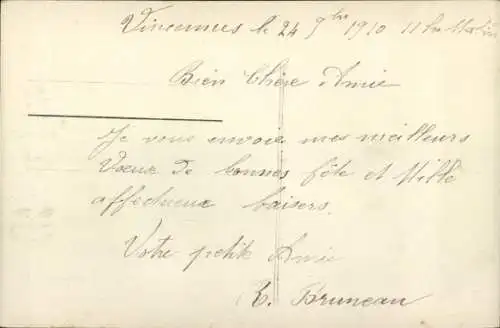 Vincennes le 24 9bre 1910 11 hrs Matin
Bien Chère Amie
Je vous envoie mes meilleurs
Vœux de bonnes fête et Mille
affectueux baisers.
Votre petite Amie
Bruneau